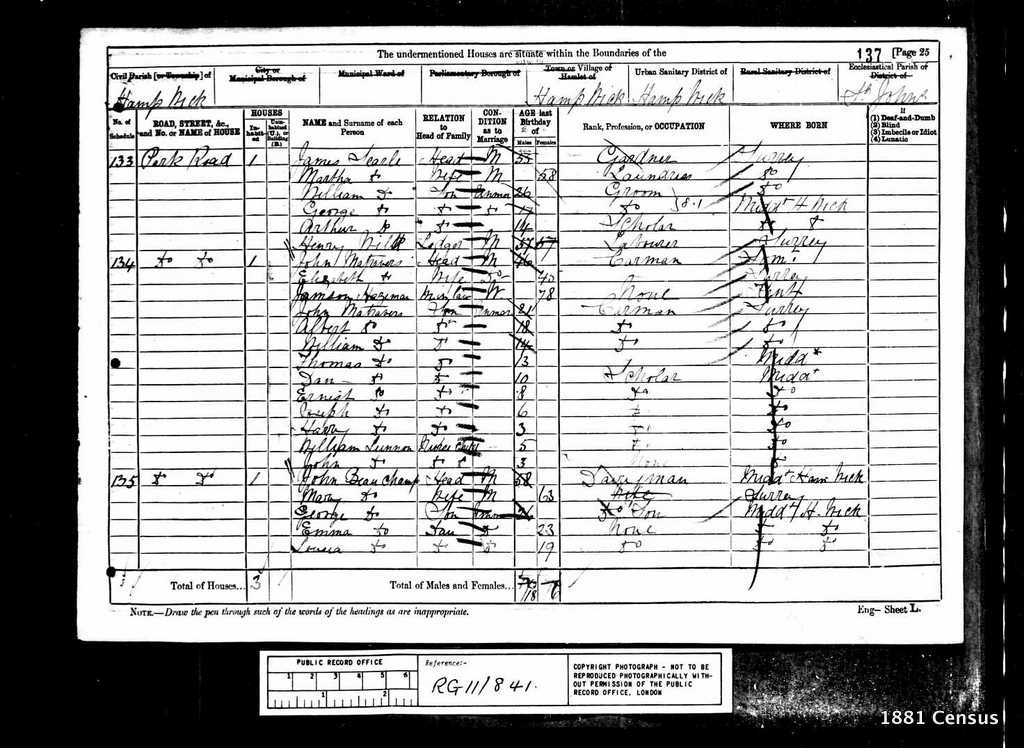 The undermentioned Houses are situate within the Boundaries of the
137 [Page 25
Civil Parish [or Township] of
City or Municipal Borough of
Municipal Ward of
Parliamentary Borough of
Town or Village of Hamlet of
Urban Sanitary District of
Rural Sanitary District of
Ecclesiastical Parish or District of
Hamp Wick Hamp Wick Hamp Wick St Johns
No. of Schedule
ROAD, STREET, &c., and No. or NAME of HOUSE
HOUSES
Inhabited
Uninhabited (U.), or Building (B.)
NAME and Surname of each Person
RELATION to Head of Family
CONDITION as to Marriage
AGE last Birthday of
Males Females
Rank, Profession, or OCCUPATION
WHERE BORN
If
(1) Deaf-and-Dumb
(2) Blind
(3) Imbecile or Idiot
(4) Lunatic
133 Park Road 1 James Searle Head M Gardner Surrey
Martha do Wife M 58 Laundress do
William do Son Unmar 26 Groom do
George do do do 17 do Middx H Wick
Arthur do do 14 Scholar do
Henry Lodger M Labourer Surrey
134 do do 1 John Matravers Head M Carman
Elizabeth do Wife do 40 Surrey
W 78 None
John Matravers Son Unmar 21 Carman Surrey
Albert do do 18 do do
William do do 14 do do
Thomas do do 13 Middx
Dan do do 10 Scholar Middx
Ernest do do 8 do do
Joseph do do 6 do
Harry do do 3 do
William Lunnon Nurse Child 5 do
John do do 3
135 do do 1 John Beauchamp Head M 58 Dairyman Middx Ham Wick
Mary do Wife M 63 Wife Surrey
George do Son do Son Middx H. Wick
Emma do Dau do 23 None do do
Louisa do do do 19 do do do
Total of Houses... 3
Total of Males and Females... 18 6
NOTE.—Draw the pen through such of the words of the headings as are inappropriate.
Eng— Sheet L.
PUBLIC RECORD OFFICE
1 2 3 4 5 6
1 2
Reference:-
RG 11/841.
COPYRIGHT PHOTOGRAPH - NOT TO BE
REPRODUCED PHOTOGRAPHICALLY WITH-
OUT PERMISSION OF THE PUBLIC
RECORD OFFICE, LONDON
1881 Census